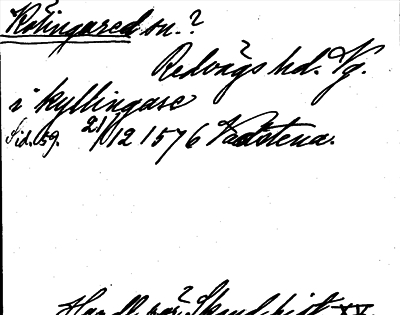 Kölingared sn.?
Redvägs hd. Vg.
i kyllingare
Sid. 59. 21/12 1576 Vadstena.
Handl. rör. Skand. hist. XX.